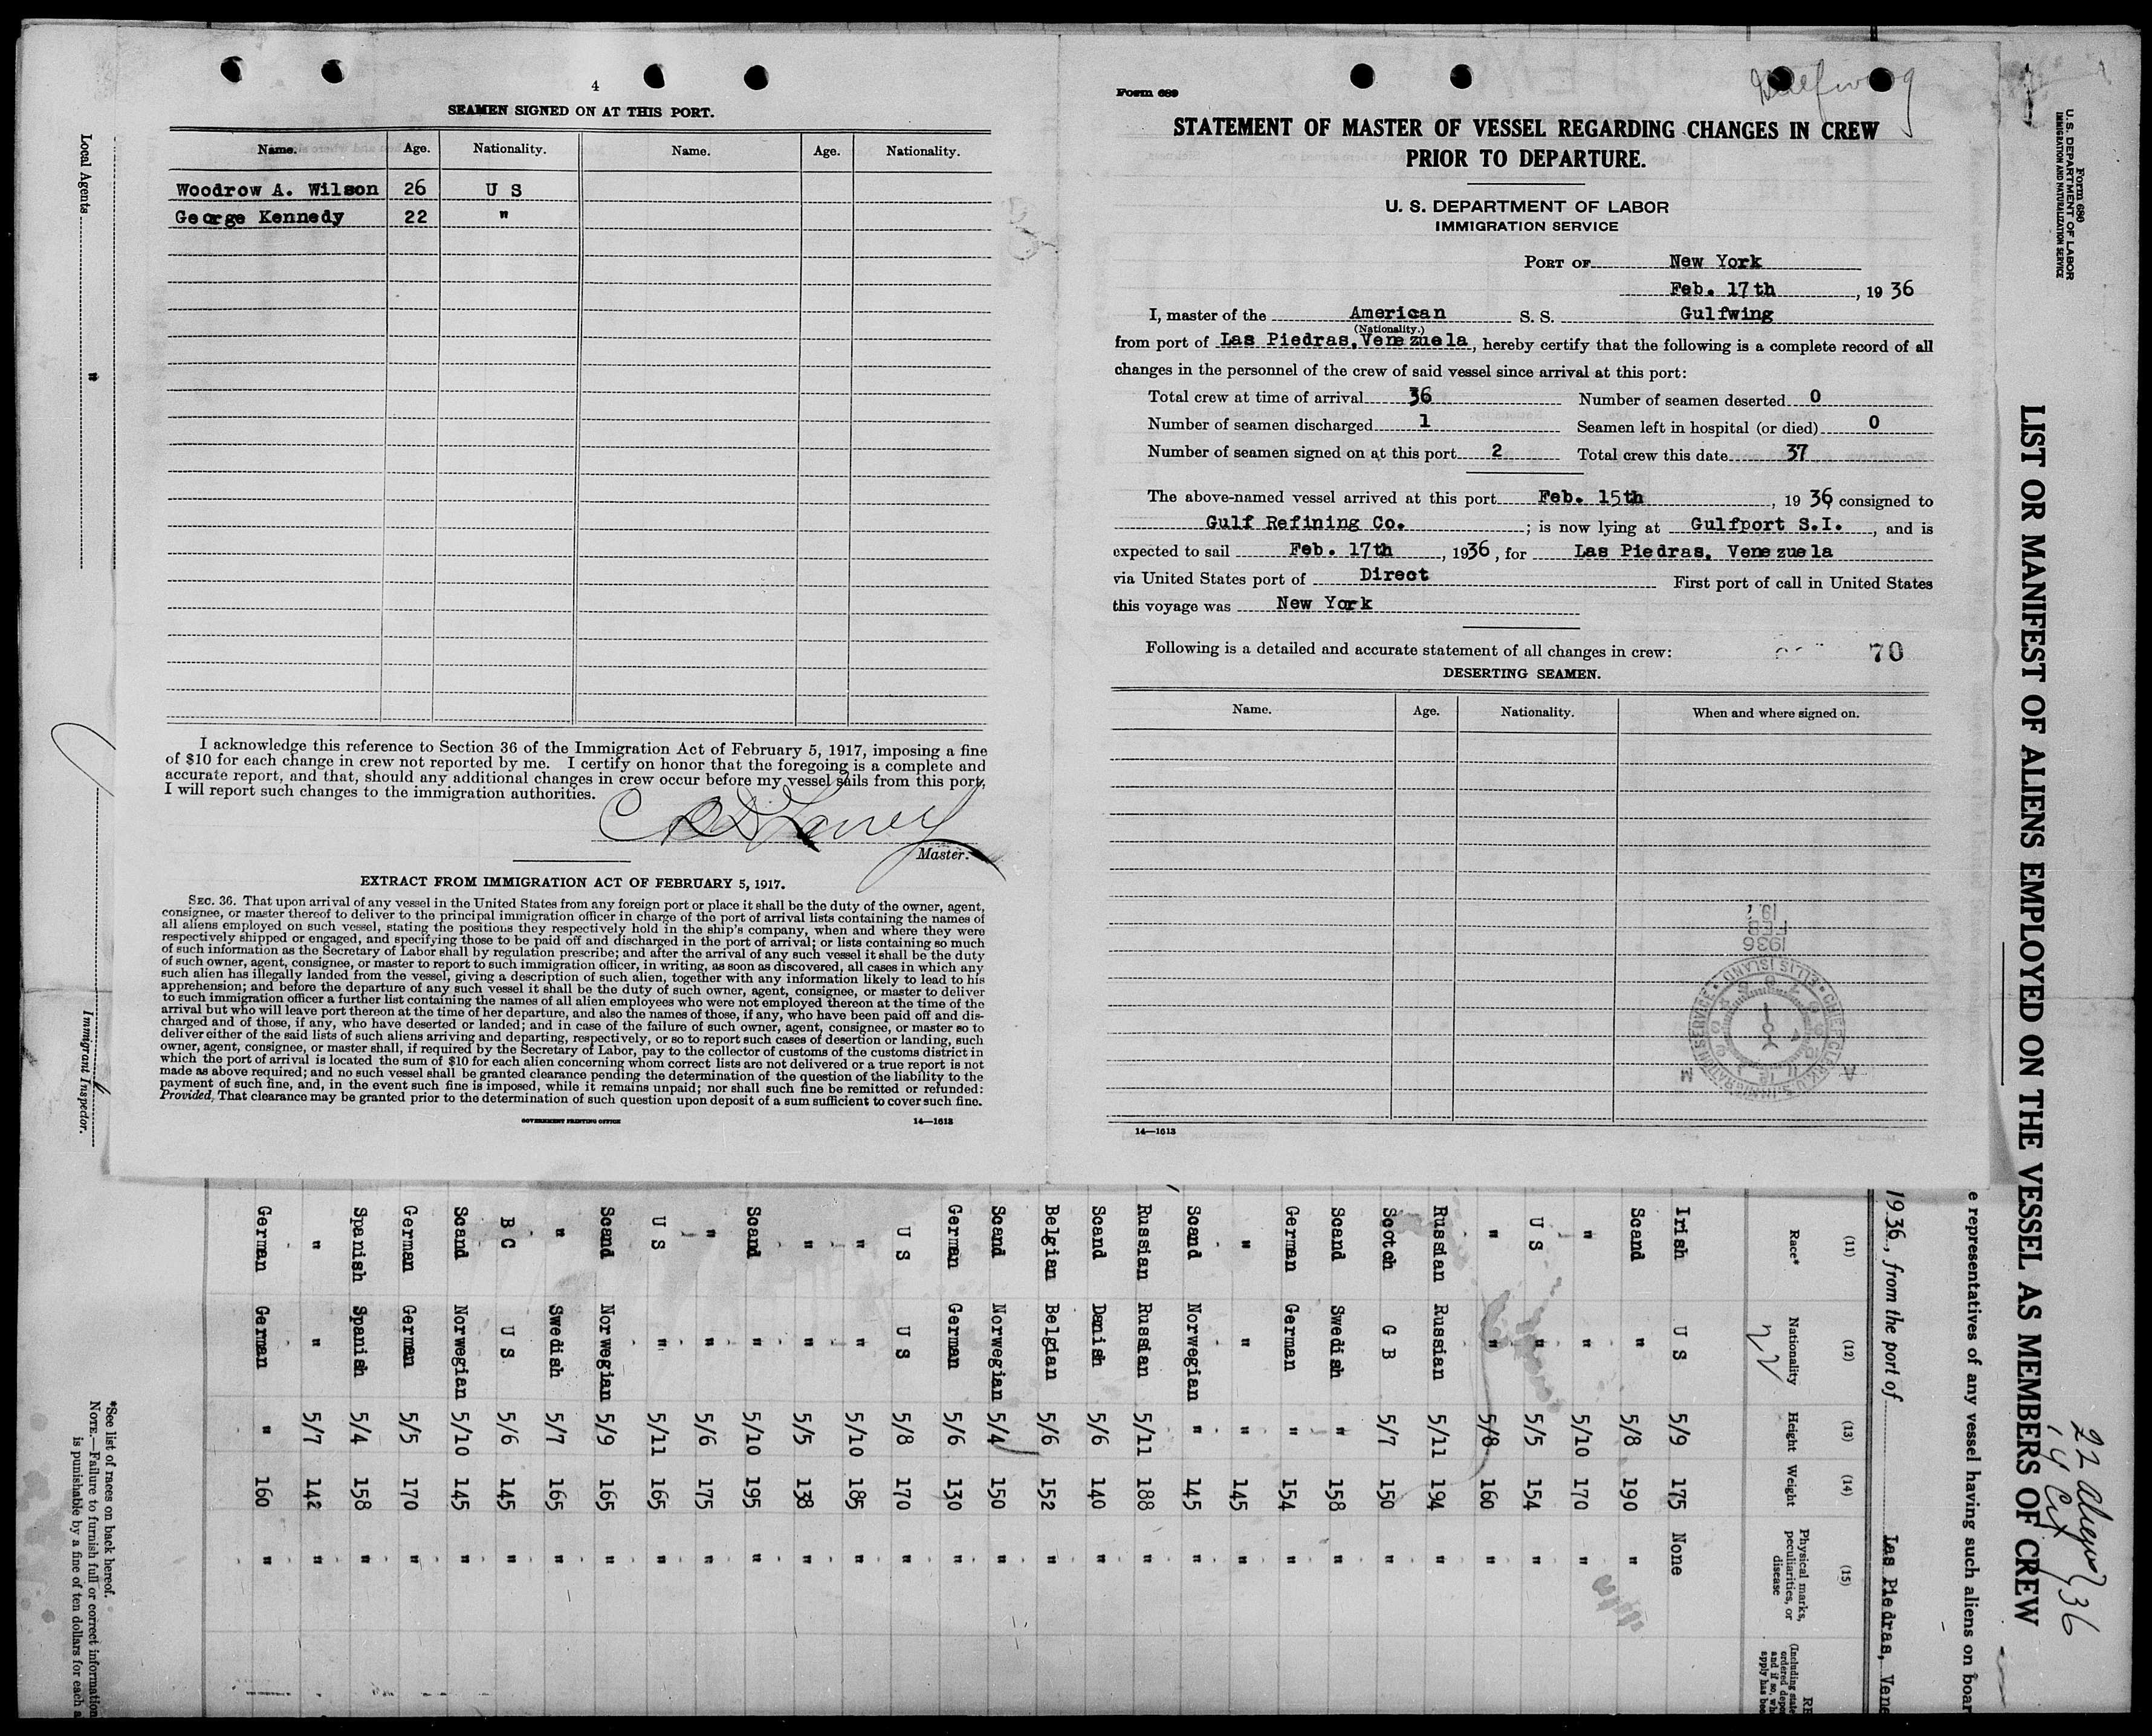 4
SEAMEN SIGNED ON AT THIS PORT.
Name. Age. Nationality. Name. Age. Nationality.
Woodrow A. Wilson 26 U S
George Kennedy 22 "
I acknowledge this reference to Section 36 of the Immigration Act of February 5, 1917, imposing a fine
of $10 for each change in crew not reported by me. I certify on honor that the foregoing is a complete and
accurate report, and that, should any additional changes in crew occur before my vessel sails from this port,
I will report such changes to the immigration authorities.
Master.
EXTRACT FROM IMMIGRATION ACT OF FEBRUARY 5, 1917.
SEC. 36. That upon arrival of any vessel in the United States from any foreign port or place it shall be the duty of the owner, agent,
consignee, or master thereof to deliver to the principal immigration officer in charge of the port of arrival lists containing the names of
all aliens employed on such vessel, stating the positions they respectively hold in the ship's company, when and where they were
respectively shipped or engaged, and specifying those to be paid off and discharged in the port of arrival; or lists containing so much
of such information as the Secretary of Labor shall by regulation prescribe; and after the arrival of any such vessel it shall be the duty
of such owner, agent, consignee, or master to report to such immigration officer, in writing, as soon as discovered, all cases in which any
such alien has illegally landed from the vessel, giving a description of such alien, together with any information likely to lead to his
apprehension; and before the departure of any such vessel it shall be the duty of such owner, agent, consignee, or master to deliver
to such immigration officer a further list containing the names of all alien employees who were not employed thereon at the time of the
arrival but who will leave port thereon at the time of her departure, and also the names of those, if any, who have been paid off and dis-
charged and of those, if any, who have deserted or landed; and in case of the failure of such owner, agent, consignee, or master so to
deliver either of the said lists of such aliens arriving and departing, respectively, or so to report such cases of desertion or landing, such
owner, agent, consignee, or master shall, if required by the Secretary of Labor, pay to the collector of customs of the customs district in
which the port of arrival is located the sum of $10 for each alien concerning whom correct lists are not delivered or a true report is not
made as above required; and no such vessel shall be granted clearance pending the determination of the question of the liability to the
payment of such fine, and, in the event such fine is imposed, while it remains unpaid; nor shall such fine be remitted or refunded:
Provided, That clearance may be granted prior to the determination of such question upon deposit of a sum sufficient to cover such fine.
GOVERNMENT PRINTING OFFICE 14—1613
Form 689
Gulfwing
STATEMENT OF MASTER OF VESSEL REGARDING CHANGES IN CREW
PRIOR TO DEPARTURE.
U. S. DEPARTMENT OF LABOR
IMMIGRATION SERVICE
PORT OF New York
Feb. 17th, 1936
I, master of the American S. S. Gulfwing
(Nationality.)
from port of Las Piedras, Venezuela, hereby certify that the following is a complete record of all
changes in the personnel of the crew of said vessel since arrival at this port:
Total crew at time of arrival 36 Number of seamen deserted 0
Number of seamen discharged 1 Seamen left in hospital (or died) 0
Number of seamen signed on at this port 2 Total crew this date 37
The above-named vessel arrived at this port Feb. 15th, 1936, consigned to
Gulf Refining Co. ; is now lying at Gulfport S.I., and is
expected to sail Feb. 17th, 1936, for Las Piedras, Venezuela
via United States port of Direct First port of call in United States
this voyage was New York
Following is a detailed and accurate statement of all changes in crew:
70
DESERTING SEAMEN.
Name. Age. Nationality. When and where signed on.
1936
FEB
CHIEF CLERK U.S. IMMIGRATION SERVICE ELLIS ISLAND
A M
14—1613
Local Agents "
Immigrant Inspector.
Form 680
U. S. DEPARTMENT OF LABOR
IMMIGRATION AND NATURALIZATION SERVICE
LIST OR MANIFEST OF ALIENS EMPLOYED ON THE VESSEL AS MEMBERS OF CREW
22 aliens
14 Cit
36
e representatives of any vessel having such aliens on boar
1936, from the port of Las Piedras, Vene
(11) (12) (13) (14) (15)
Race* Nationality Height Weight Physical marks, peculiarities, or disease
Irish U S 5/9 175 None
Scand " 5/8 190 "
" " 5/10 170 "
U S " 5/5 154 "
" " 5/8 160 "
Russian Russian 5/11 194 "
Scotch G B 5/7 150 "
Scand Swedish " 158 "
German German " 154 "
" " " 145 "
Scand Norwegian " 145 "
Russian Russian 5/11 188 "
Scand Danish 5/6 140 "
Belgian Belgian 5/6 152 "
Scand Norwegian 5/4 150 "
German German 5/6 130 "
U S U S 5/8 170 "
" " 5/10 185 "
" " 5/5 138 "
Scand " 5/10 195 "
" " 5/6 175 "
U S " 5/11 165 "
Scand Norwegian 5/9 165 "
" Swedish 5/7 165 "
B C U S 5/6 145 "
Scand Norwegian 5/10 145 "
German German 5/5 170 "
Spanish Spanish 5/4 158 "
" " 5/7 142 "
German German " 160 "
*See list of races on back hereof.
NOTE.—Failure to furnish full or correct information
is punishable by a fine of ten dollars for each a